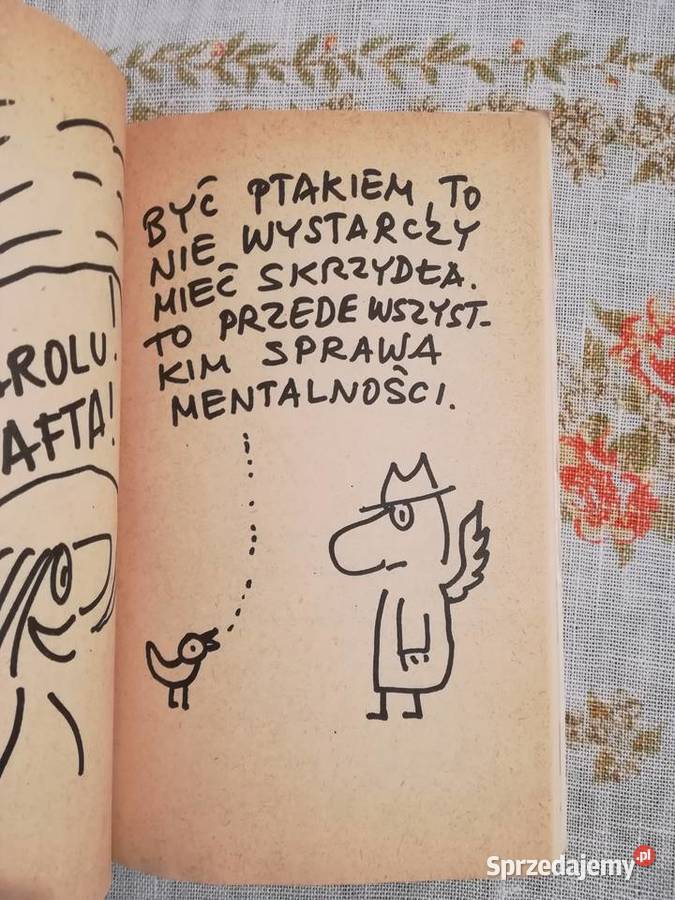 AROLU!
AFTA!
BYĆ PTAKIEM, TO
NIE WYSTARCZY
MIEĆ SKRZYDŁA.
TO PRZEDEWSZYST-
KIM SPRAWA
MENTALNOŚCI.
Sprzedajemy.pl